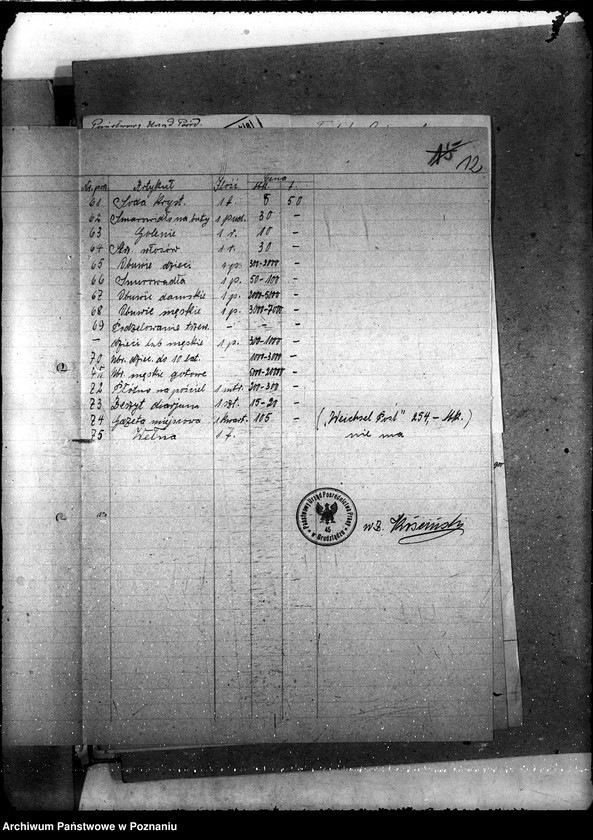 Państwowy Urząd Pośr.
15 12
Cena
Nr. poz. Artykuł Ilość Mk. f.
61 Soda kryst. 1 f. 8 50
62 Smarowidło na buty 1 pud. 30 -
63 Golenie 1 r. 10 -
64 Strz. włosów 1 r. 30 -
65 Obuwie dzieci 1 p. 300-2000 -
66 Smurowadła 1 p. 50-100 -
67 Obuwie damskie 1 p. 2000-5000 -
68 Obuwie męskie 1 p. 3000-7000 -
69 Podzelowanie trzew. - - -
- dzieci lub męskie 1 p. 300-1000 -
70 Ubr. dziec. do 10 lat. 1000-3000 -
71 Ubr. męskie gotowe 5000-20000 -
72 Płótno na pościel 1 mtr. 200-300 -
73 Zeszyt diarjusz 1 szt. 15-20 -
74 Gazeta miejscowa 1 kwart. 105 - ("Weichsel Post" 254,- Mk.)
75 Wełna 1 f. nie ma
Państwowy Urząd Pośrednictwa Pracy
45
w Grudziądzu
w z.
Archiwum Państwowe w Poznaniu